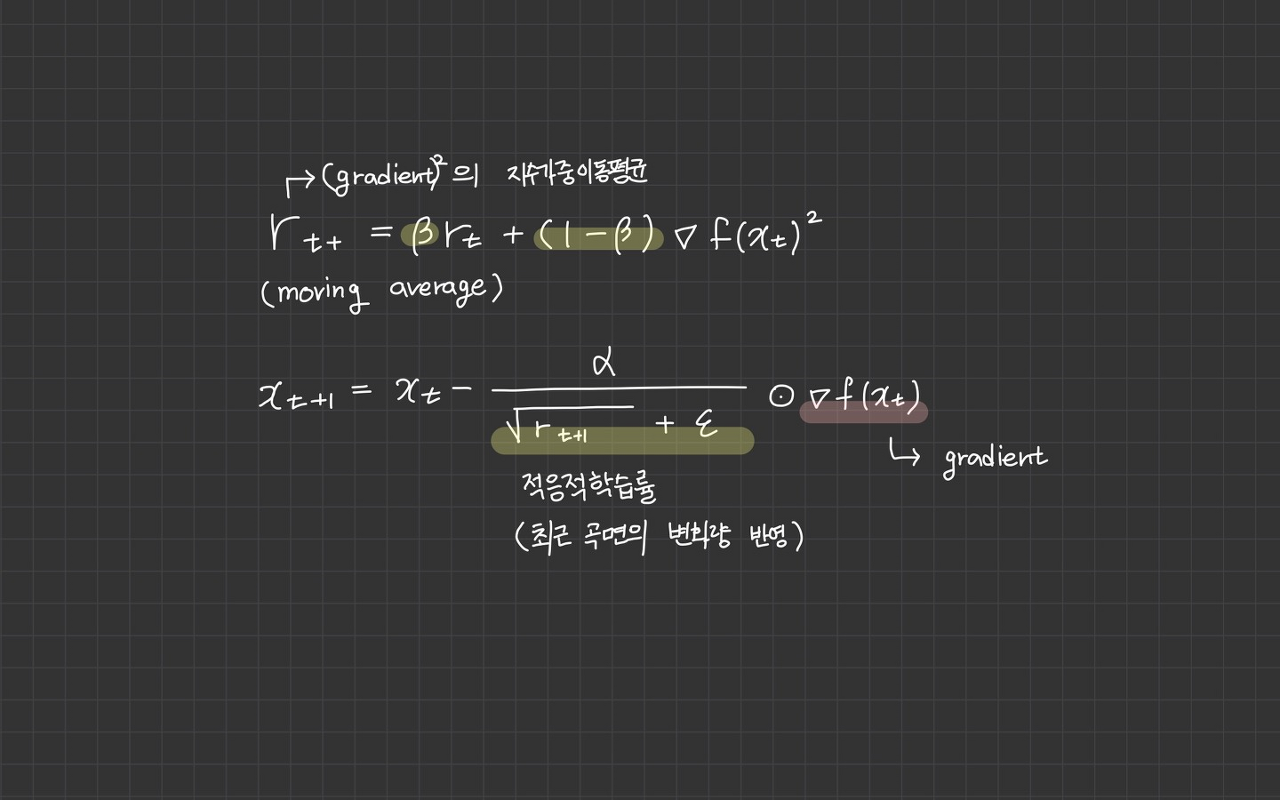 ↱(gradient)² 의 지수가중이동평균
r t+ = β r t + (1-β) ∇ f(x t)²
(moving average)
x t+1 = x t - α / (√r t+1 + ε) ⊙ ∇f(x t)
↳ gradient
적응적학습률
(최근 곡면의 변화량 반영)